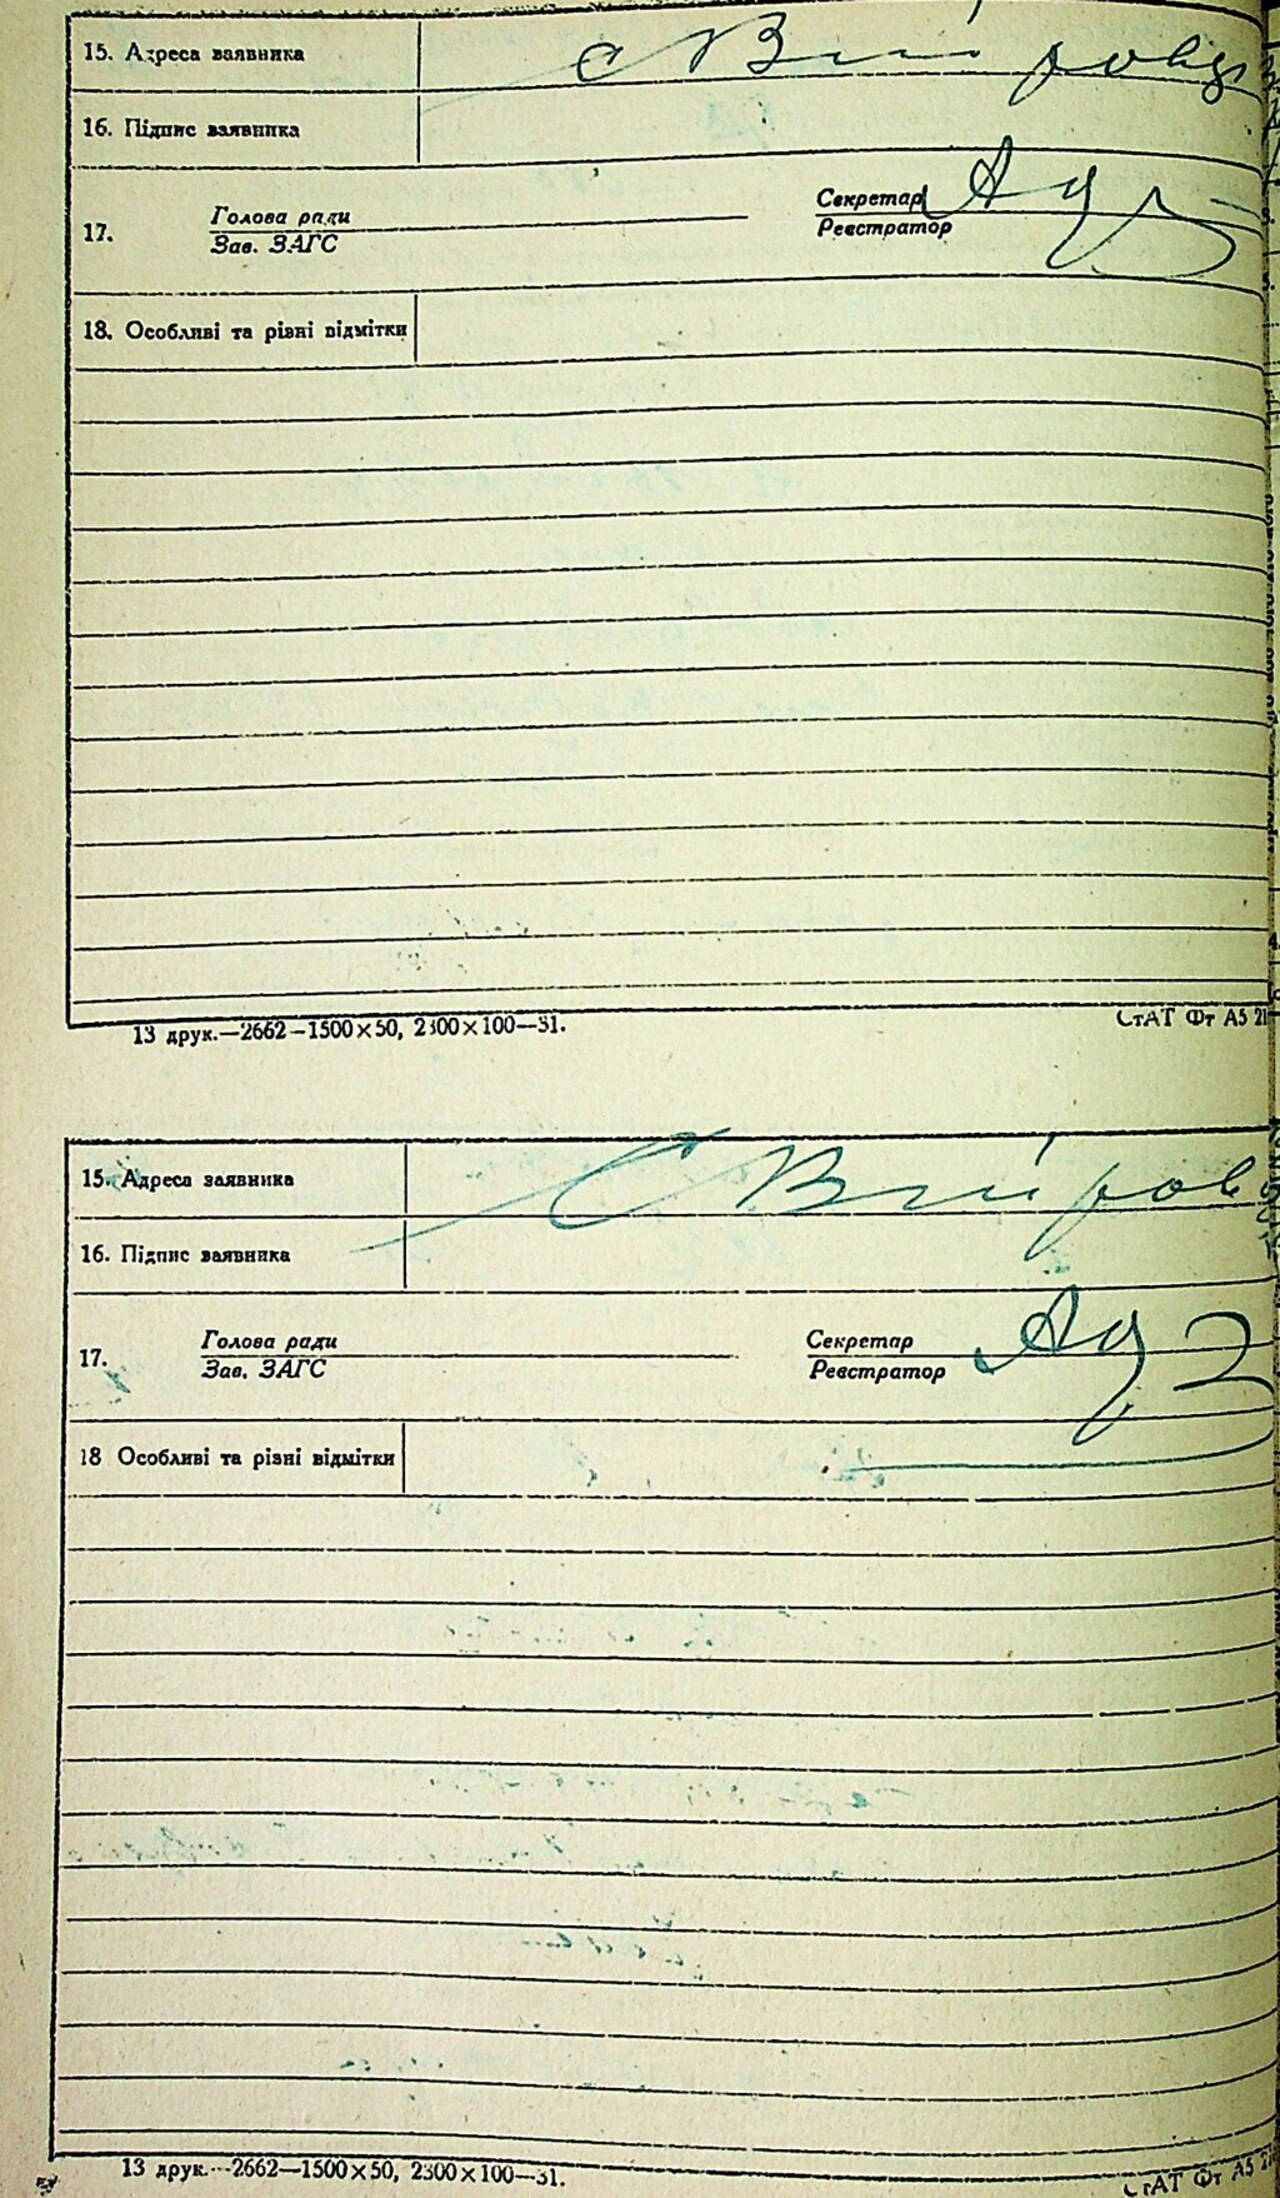 15. Адреса заявника
16. Підпис заявника
17. Голова ради
Зав. ЗАГС
Секретар
Реєстратор
18. Особливі та різні відмітки
13 друк.—2662—1500×50, 2300×100—31.
СтАТ Фт А5 21
15. Адреса заявника
16. Підпис заявника
17. Голова ради
Зав. ЗАГС
Секретар
Реєстратор
18 Особливі та різні відмітки
13 друк.—2662—1500×50, 2300×100—31.
СтАТ Фт А5